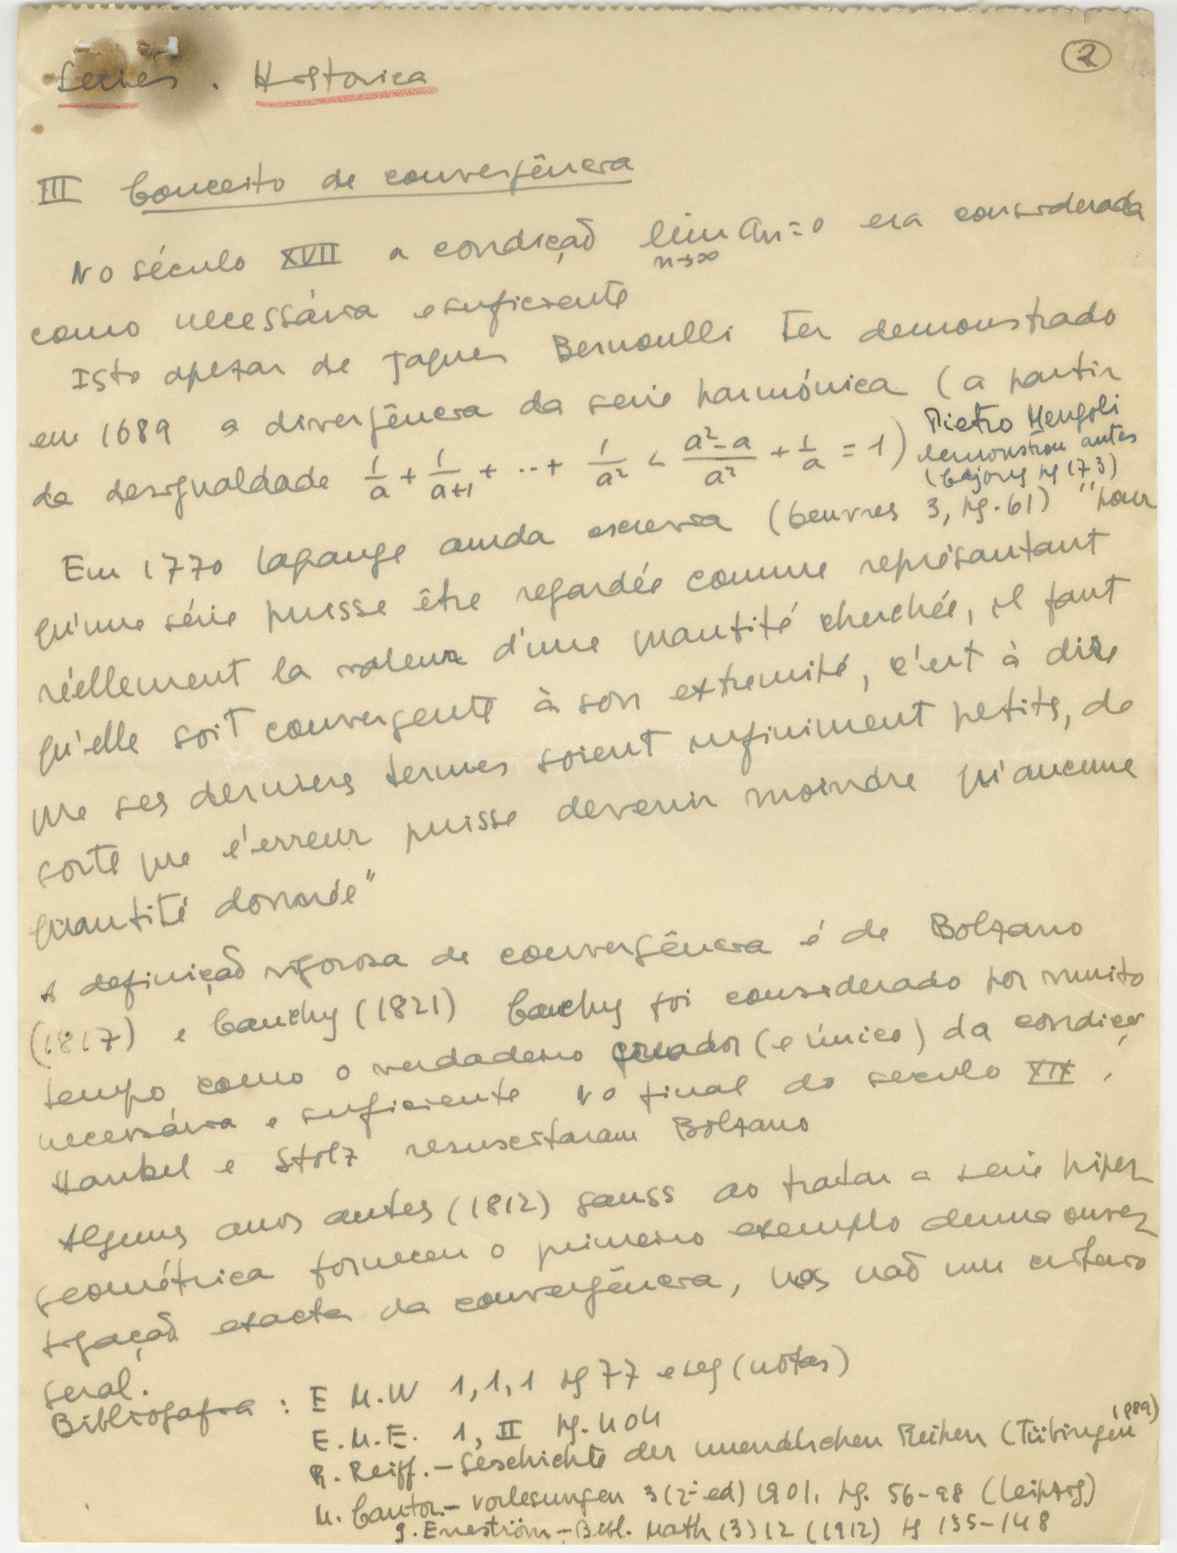 Series. Historica
2
III Conceito de convergência
No século XVII a condição lim an = 0 era considerada
n→∞
como necessária e suficiente
Isto apezar de Jaques Bernoulli ter demonstrado
em 1689 a divergência da serie harmónica (a partir
da desigualdade 1/a + 1/a+1 + ... + 1/a² < a²-a/a² + 1/a = 1)
Pietro Mengoli
demonstrou antes
(Cajory pg 173)
Em 1770 Lagrange ainda escrevia (Oeuvres 3, pg. 61) "pour
qu'une série puisse être regardée comme représantant
réellement la valeur d'une quantité cherchée, il faut
qu'elle soit convergente à son extremité, c'est à dire
que ses derniers termes soient infiniment petits, de
sorte que l'erreur puisse devenir moindre qu'aucune
quantité donnée"
A definição rigorosa de convergência é de Bolzano
(1817) e Cauchy (1821) Cauchy foi considerado por muito
tempo como o verdadeiro criador (e único) da condição
necessária e suficiente No final do seculo XIX,
Hankel e Stolz resuscitaram Bolzano
Alguns anos antes (1812) Gauss ao tratar a serie hiper
geométrica forneceu o primeiro exemplo duma inves
tigação exacta da convergência, mas não um criterio
geral.
Bibliografia : E M.W 1,1,1 pg 77 e seg (notas)
E.M.E. 1, II pg. 404
R. Reiff. - Geschichte der unendlichen Reihen (Tübingen 1889)
M. Cantor - Vorlesungen 3 (2ª ed) 1901. pg. 56-98 (Leipzig)
G. Eneström - Bibl. Math (3) 12 (1912) pg 135-148